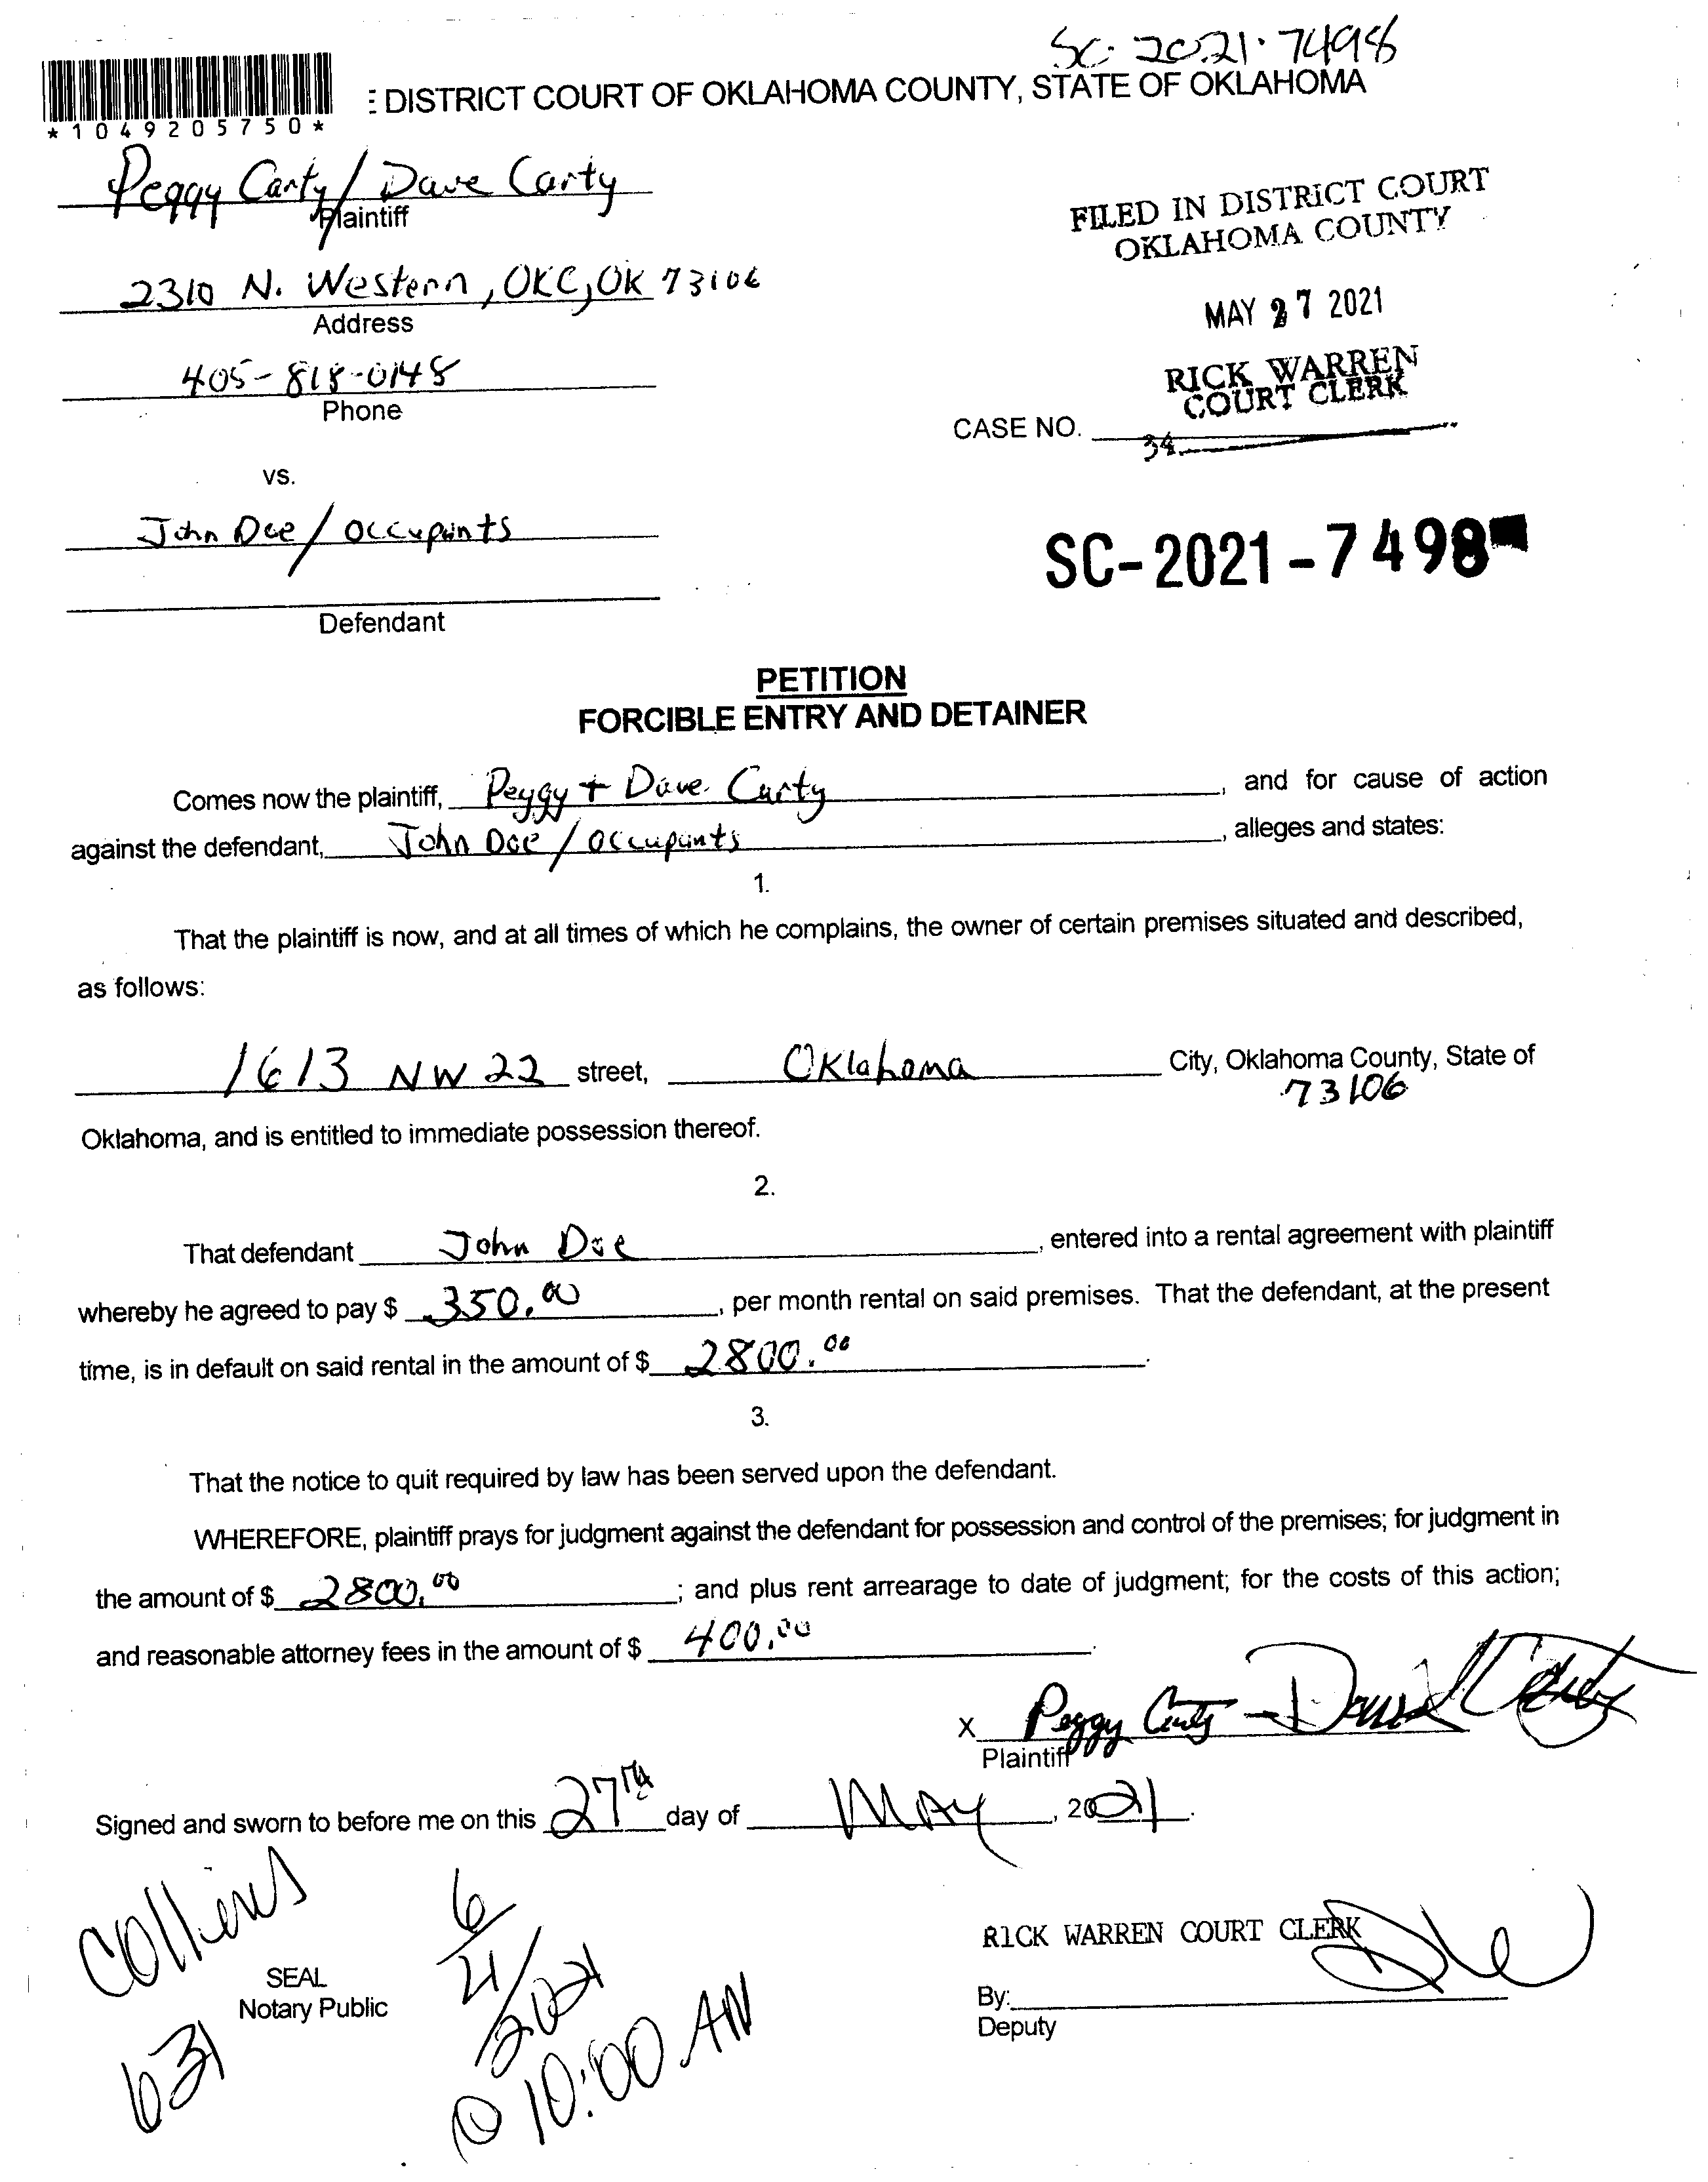 SC-2021-7498
*1049205750*
DISTRICT COURT OF OKLAHOMA COUNTY, STATE OF OKLAHOMA
Peggy Carty / Dave Carty
Plaintiff
FILED IN DISTRICT COURT
OKLAHOMA COUNTY
2310 N. Western, OKC, OK 73106
Address
MAY 27 2021
405-818-0148
Phone
RICK WARREN
COURT CLERK
CASE NO.
34
vs.
John Doe / Occupants
SC-2021-7498
Defendant
PETITION
FORCIBLE ENTRY AND DETAINER
Comes now the plaintiff, Peggy + Dave Carty, and for cause of action
against the defendant, John Doe / Occupants, alleges and states:
1.
That the plaintiff is now, and at all times of which he complains, the owner of certain premises situated and described,
as follows:
1613 NW 22 street, Oklahoma City, Oklahoma County, State of
73106
Oklahoma, and is entitled to immediate possession thereof.
2.
That defendant John Doe, entered into a rental agreement with plaintiff
whereby he agreed to pay $ 350.00, per month rental on said premises. That the defendant, at the present
time, is in default on said rental in the amount of $ 2800.00.
3.
That the notice to quit required by law has been served upon the defendant.
WHEREFORE, plaintiff prays for judgment against the defendant for possession and control of the premises; for judgment in
the amount of $ 2800.00; and plus rent arrearage to date of judgment; for the costs of this action;
and reasonable attorney fees in the amount of $ 400.00.
X Peggy Carty - David Carty
Plaintiff
Signed and sworn to before me on this 27th day of May, 2021.
Collins
6/21/2021
RICK WARREN COURT CLERK
SEAL
Notary Public
By:
Deputy
631
@ 10:00 AM